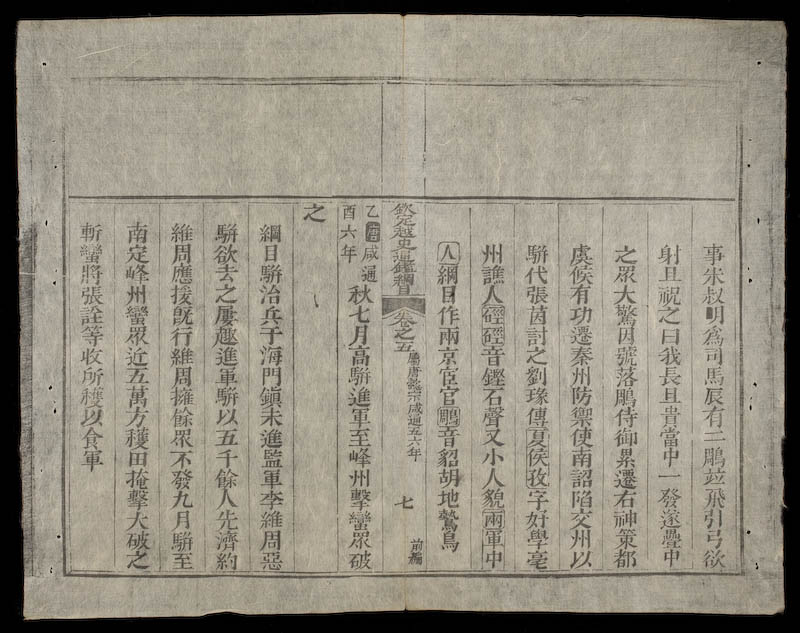 事朱叔明爲司馬辰有二鵰竝飛引弓欲
射且祝之曰我長且貴當中一發遂疊中
之眾大驚因號落鵰侍御累遷右神策都
虞候有功遷秦州防禦使南詔陷交州以
駢代張茵討之劉瑑傳夏侯孜字好學亳
州譙人硜硜音鏗石聲又小人貌兩軍中
人綱目作兩京宦官鵰音貂胡地鷙鳥
欽定越史通鑑綱目 卷之五 屬唐懿宗咸通五六年 七 前編
乙酉六年 唐咸通 秋七月高駢進軍至峰州擊蠻眾破
之
綱目駢治兵于海門鎭未進監軍李維周惡
駢欲去之屢趣進軍駢以五千餘人先濟約
維周應援既行維周擁餘眾不發九月駢至
南定峰州蠻眾近五萬方穫田掩擊大破之
斬蠻將張詮等收所穫以食軍